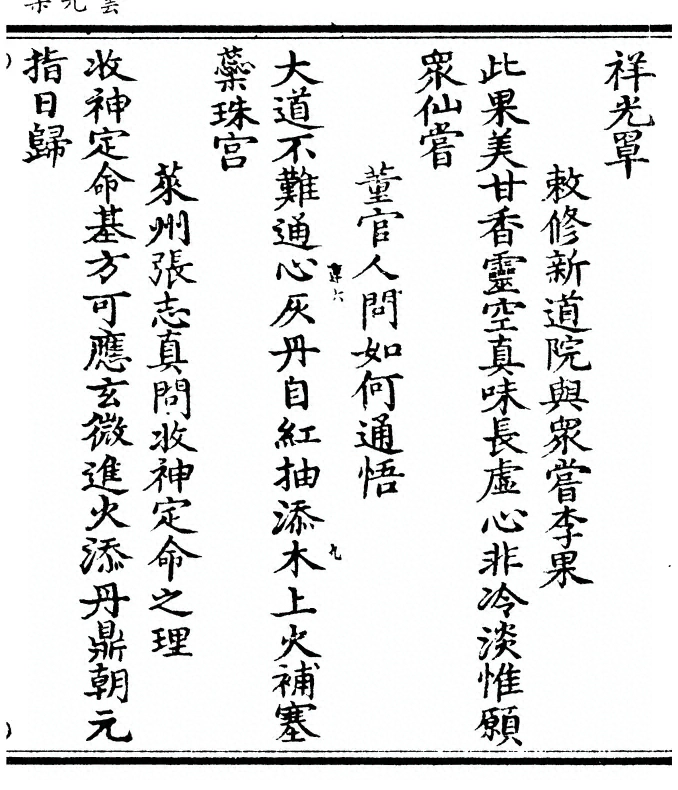 祥光罩
敕修新道院與眾嘗李果
此果美甘香靈空真味長虛心非冷淡惟願
眾仙嘗
董官人問如何通悟
大道不難通心灰丹自紅抽添木上火補塞
蘂珠宮
萊州張志真問收神定命之理
收神定命基方可應玄微進火添丹鼎朝元
指日歸